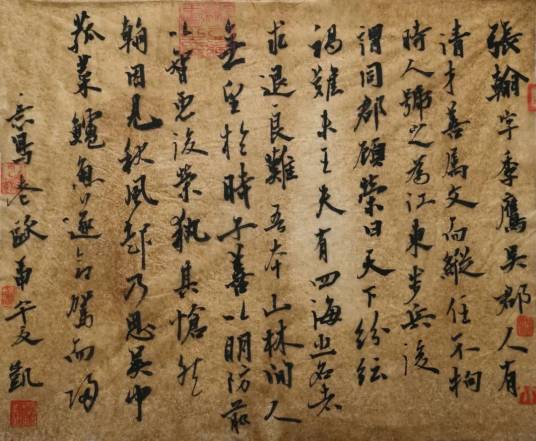 張翰字季鷹吳郡人有
清才善屬文而縱任不拘
時人號之為江東步兵後
謂同郡顧榮曰天下紛紜
禍難未王夫有四海之名者
求退良難吾本山林間人
無望於時子善以明防前
以智慮後榮執其愴然
翰因見秋風起乃思吳中
菰菜鱸魚遂命駕而歸
意寫老歐甲午夏凱